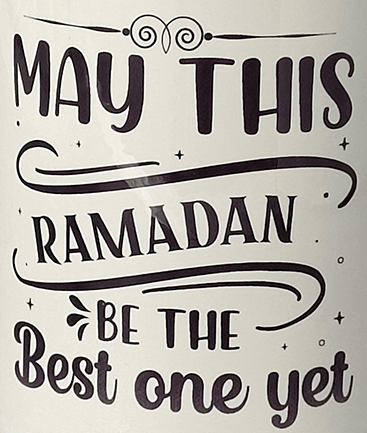 MAY THIS
RAMADAN
BE THE
Best one yet